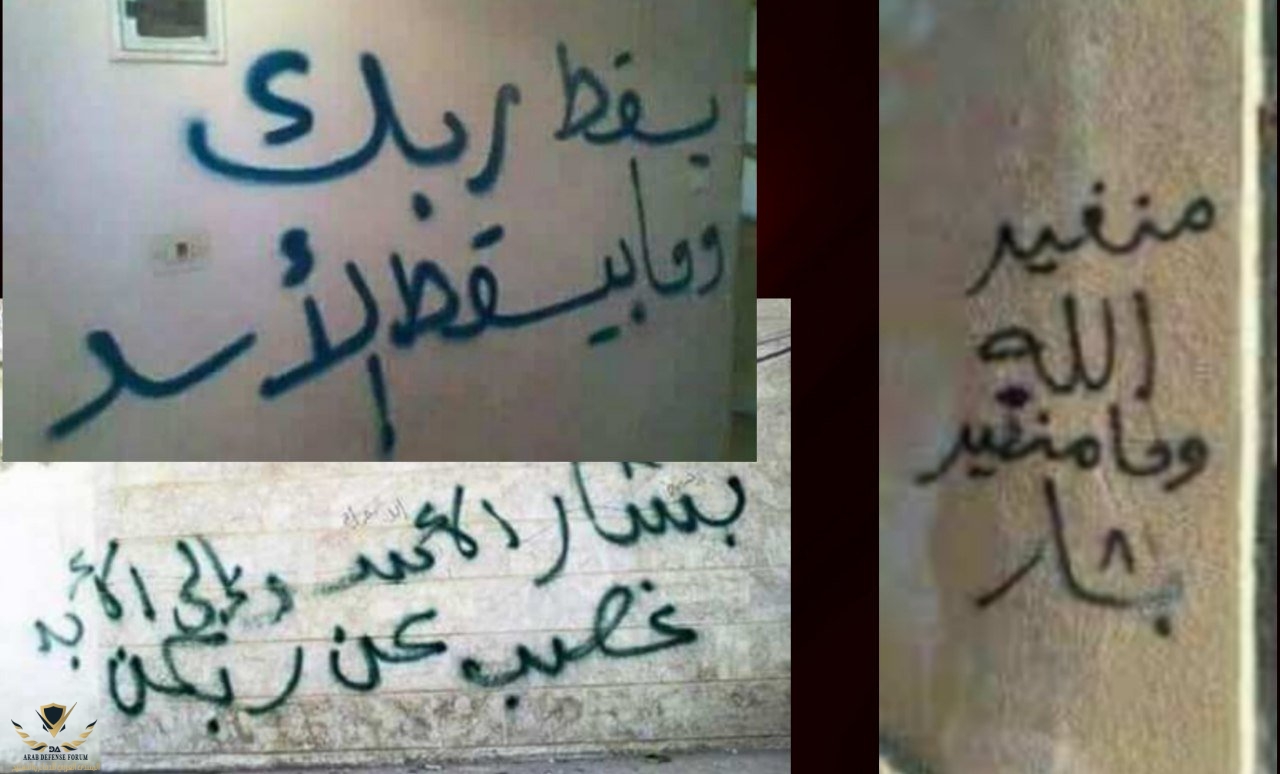 يسقط ربك
وما بيسقط الأسد
منغير
الله
وما منغير
بشار
بشار الأسد وإلى الأبد
غصب عن ربكن
DA
ARAB DEFENSE FORUM